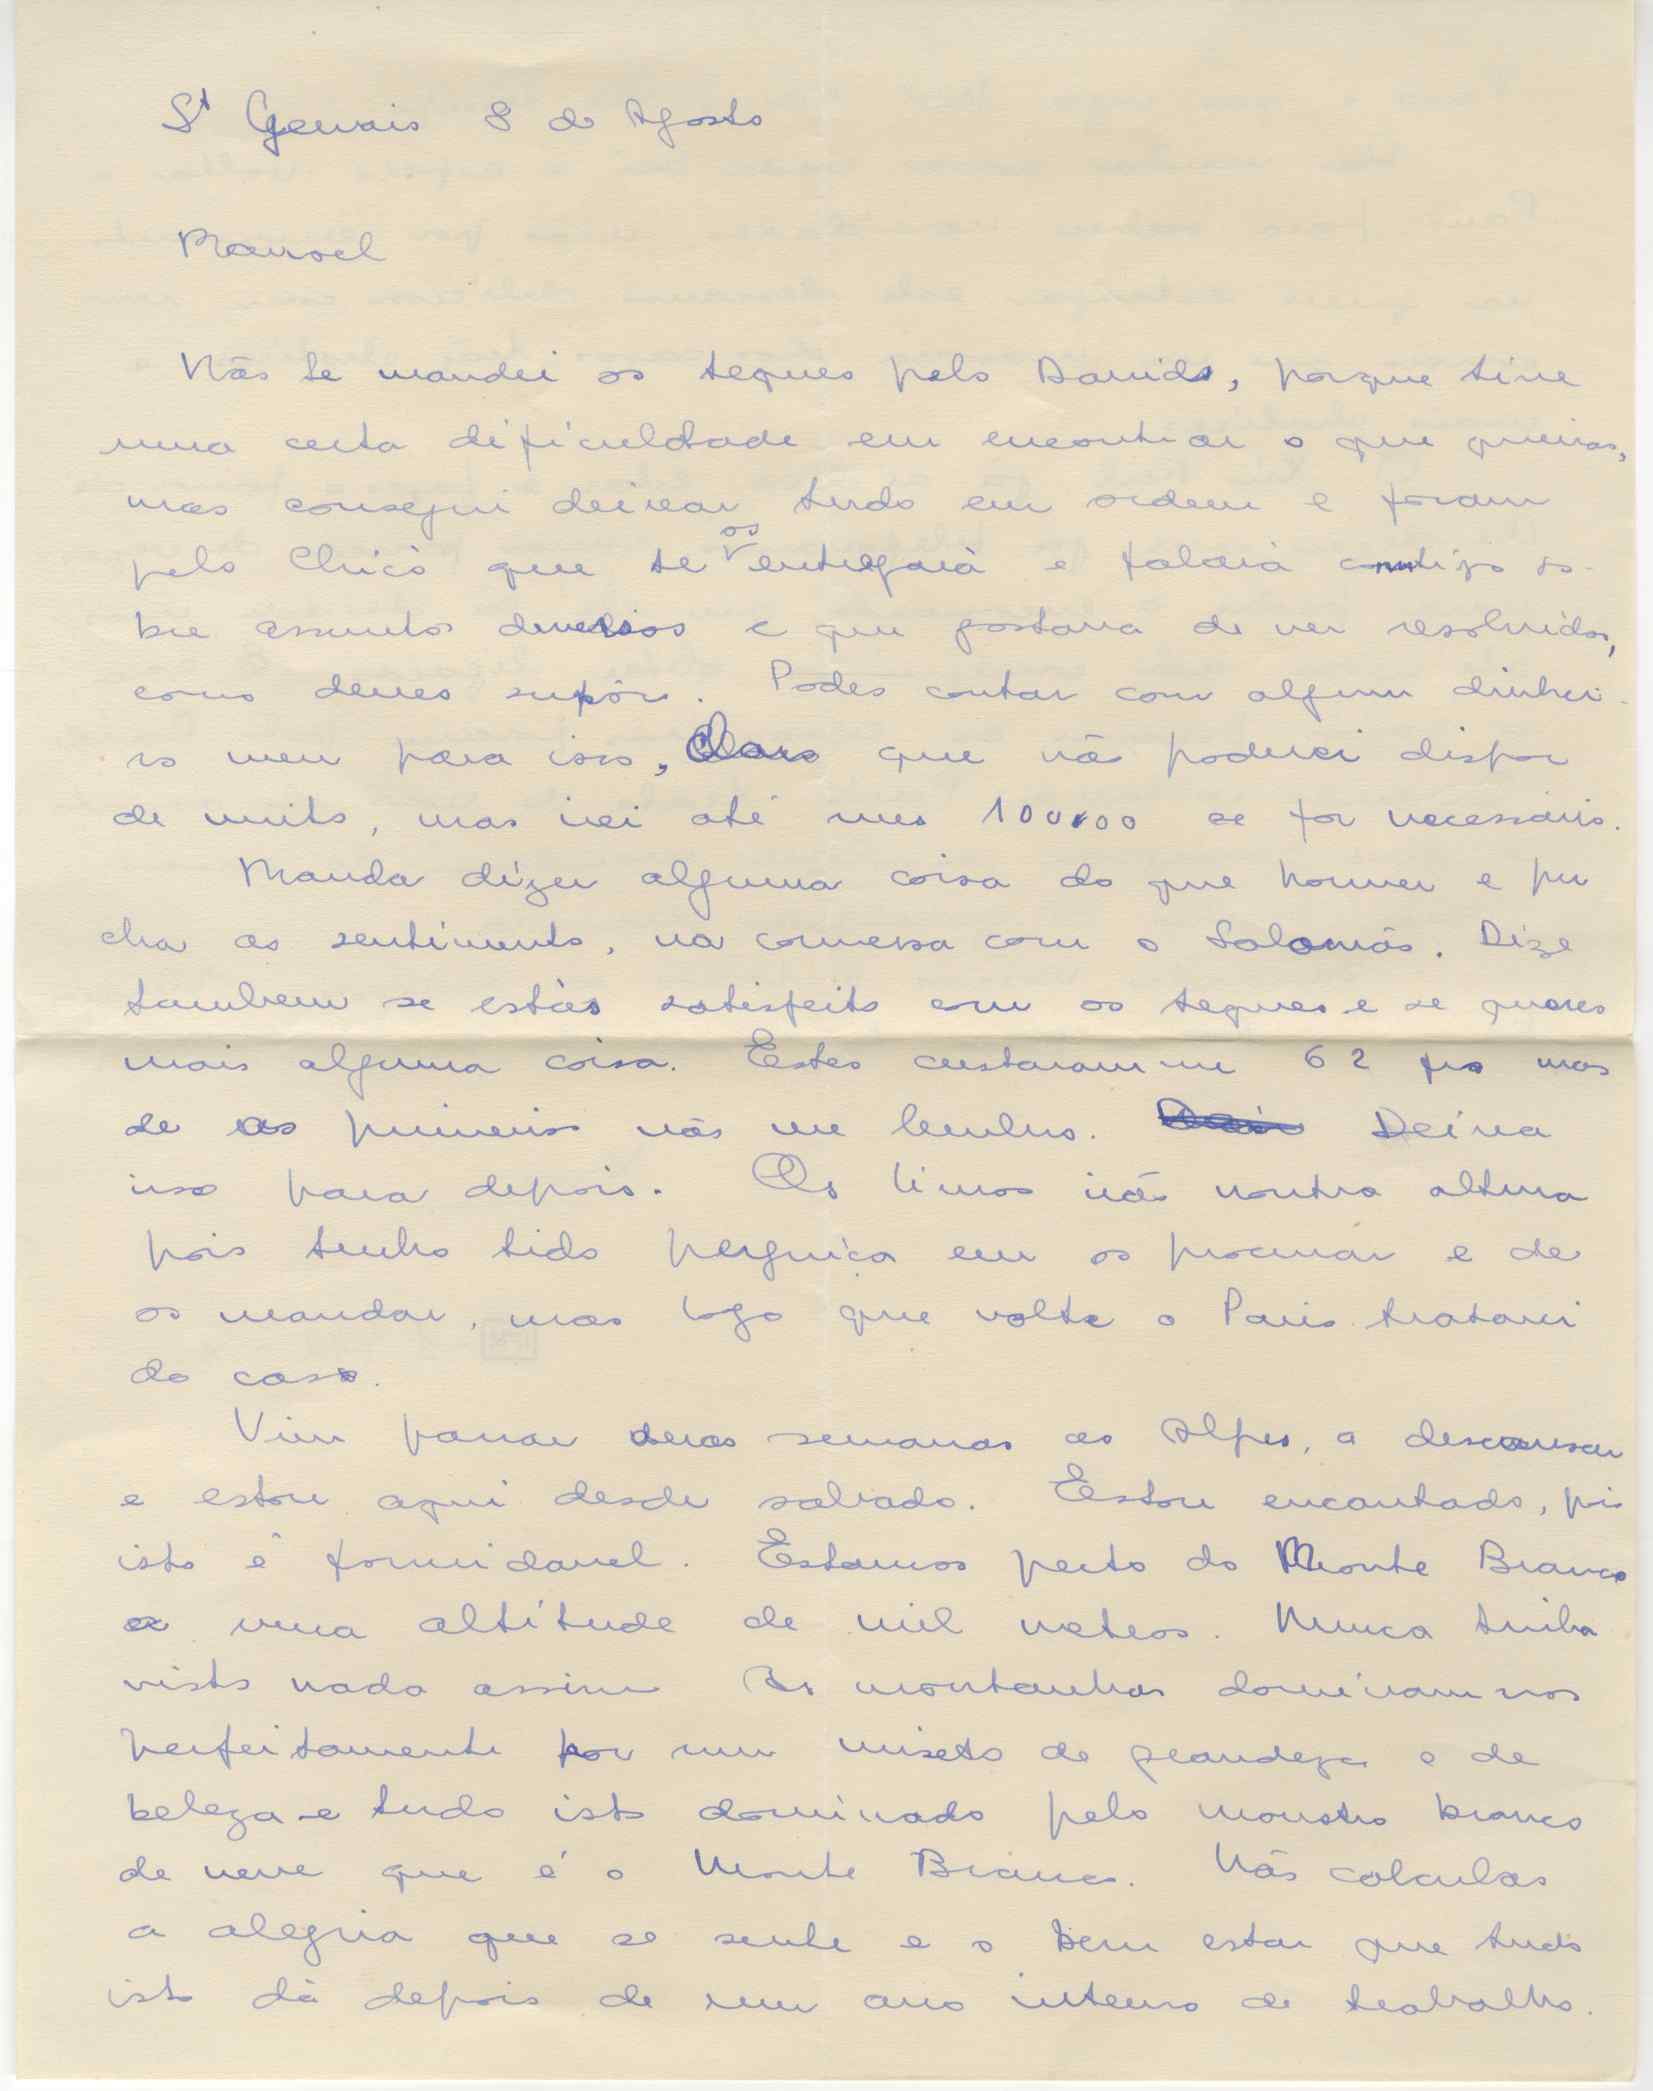 St Gervais 8 de Agosto
Manoel
Não te mandei os teques pelo David, porque tive
uma certa dificuldade em encontrar o que querias,
mas consegui deixar tudo em ordem e foram
pelo Chicó que te os entregará e falará contigo so-
bre assuntos diversos e que gostava de ver resolvidos,
como deves supôr. Podes contar com algum dinhei-
ro meu para isso, Claro que não poderei dispor
de muito, mas irei até uns 100$00 se for necessário.
Manda dizer alguma coisa do que houver e pu
cha ao sentimento, na conversa com o Salomão. Dize
tambem se estás satisfeito com os teques e se queres
mais alguma coisa. Estes custaram me 62 frs mas
de os primeiros não me lembro. Deixa
isso para depois. Os livros irão noutra altura
pois tenho tido perguiça em os procurar e de
os mandar, mas logo que volte a Paris tratarei
do caso.
Vim passar duas semanas aos Alpes, a descansar
e estou aqui desde sabado. Estou encantado, pois
isto é formidavel. Estamos perto do Monte Branco
a uma altitude de mil metros. Nunca tinha
visto nada assim As montanhas dominam nos
perfeitamente por um misto de grandeza e de
beleza e tudo isto dominado pelo monstro branco
de neve que é o Monte Branco. Não calculas
a alegria que se sente e o bem estar que tudo
isto dá depois de um ano intenso de trabalho.